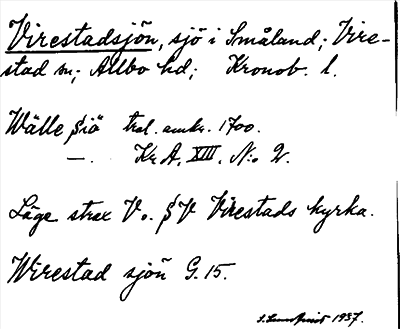 Virestadsjön, sjö i Småland; Vire-
stad sn; Allbo hd; Kronob. l.
Wälle Siö tral. omkr. 1700.
—. Kr. A. XIII. N:o 2.
Läge strax V. o. SV Virestads kyrka.
Wirestad sjön G. 15.
1937.